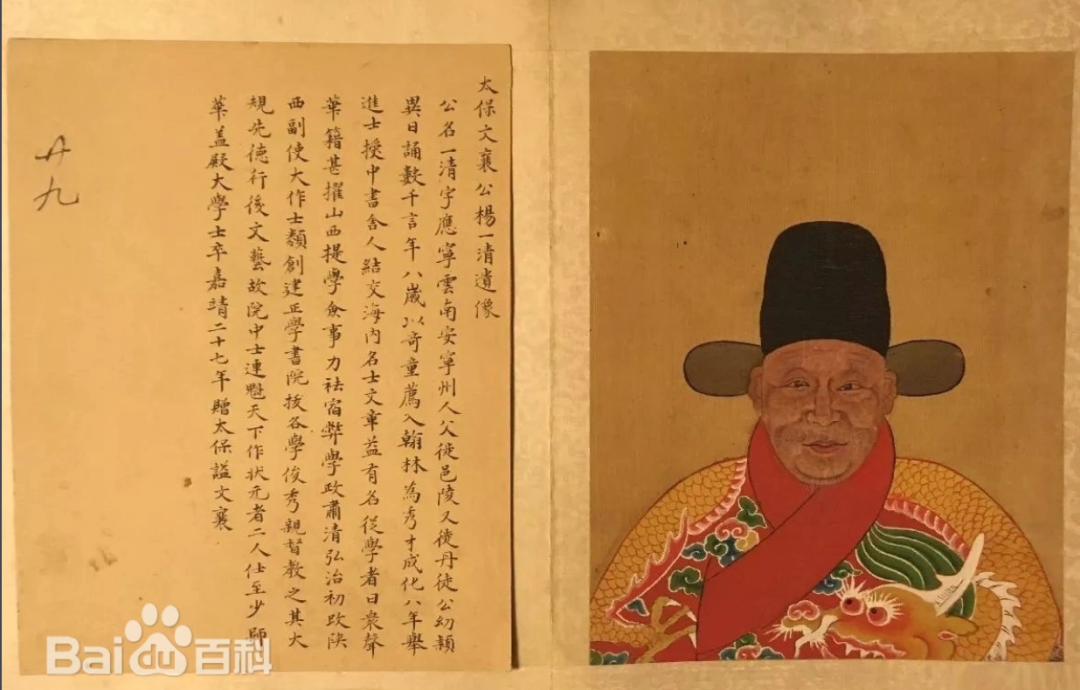 太保文襄公楊一清遺像
公名一清字應寧雲南安寧州人父徙邑陵又徙丹徒公幼穎
異日誦數千言年八歲以奇童薦入翰林為秀才成化八年舉
進士授中書舍人結交海內名士文章益有名從學者日衆聲
華籍甚擢山西提學僉事力祛宿弊學政肅清弘治初改陝
西副使大作士類創建正學書院拔各學俊秀親督教之其大
規先德行後文藝故院中士連魁天下作狀元者二人仕至少師
華盖殿大學士卒嘉靖二十七年贈太保謚文襄
廿九
Bai百科